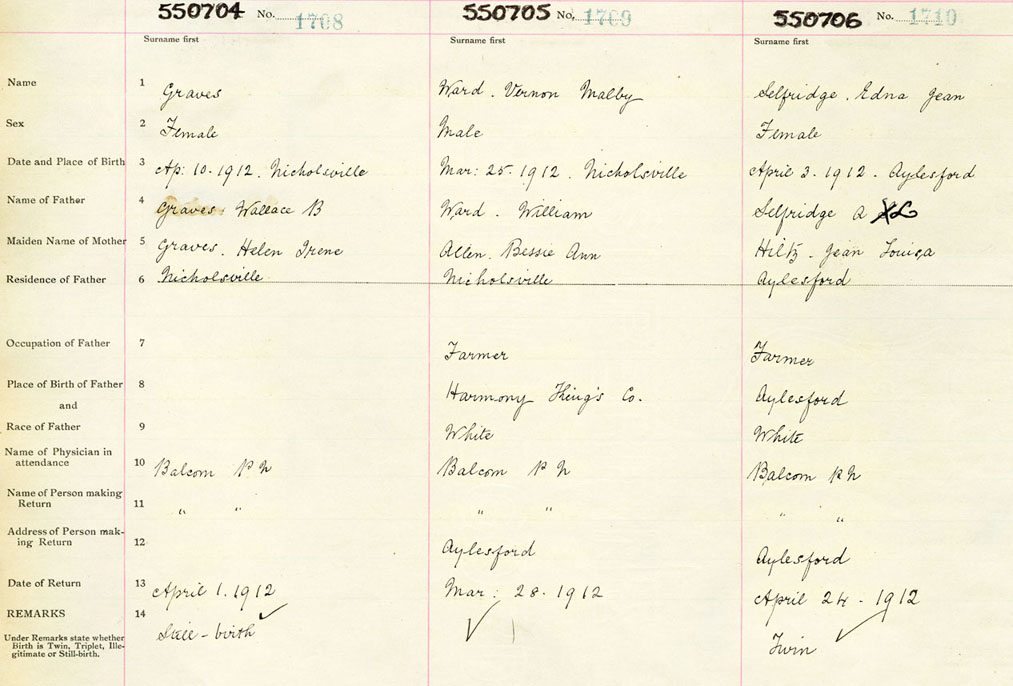 550704 No. 1708 550705 No. 1709 550706 No. 1710
Surname first Surname first Surname first
Name 1 Graves Ward. Vernon Malby Selfridge. Edna Jean
Sex 2 Female Male Female
Date and Place of Birth 3 Ap: 10. 1912. Nicholsville Mar: 25. 1912. Nicholsville April 3. 1912. Aylesford
Name of Father 4 Graves. Wallace B Ward. William Selfridge A
Maiden Name of Mother 5 Graves. Helen Irene Allen. Bessie Ann Hiltz. Jean Louisa
Residence of Father 6 Nicholsville Nicholsville Aylesford
Occupation of Father 7 Farmer Farmer
Place of Birth of Father 8 Harmony King's Co. Aylesford
and
Race of Father 9 White White
Name of Physician in
attendance 10 Balcom P N Balcom P N Balcom P N
Name of Person making
Return 11 " " " " " "
Address of Person mak-
ing Return 12 Aylesford Aylesford
Date of Return 13 April 1. 1912 Mar: 28. 1912 April 24. 1912
REMARKS 14 Still-birth Twin
Under Remarks state whether
Birth is Twin, Triplet, Ille-
gitimate or Still-birth.